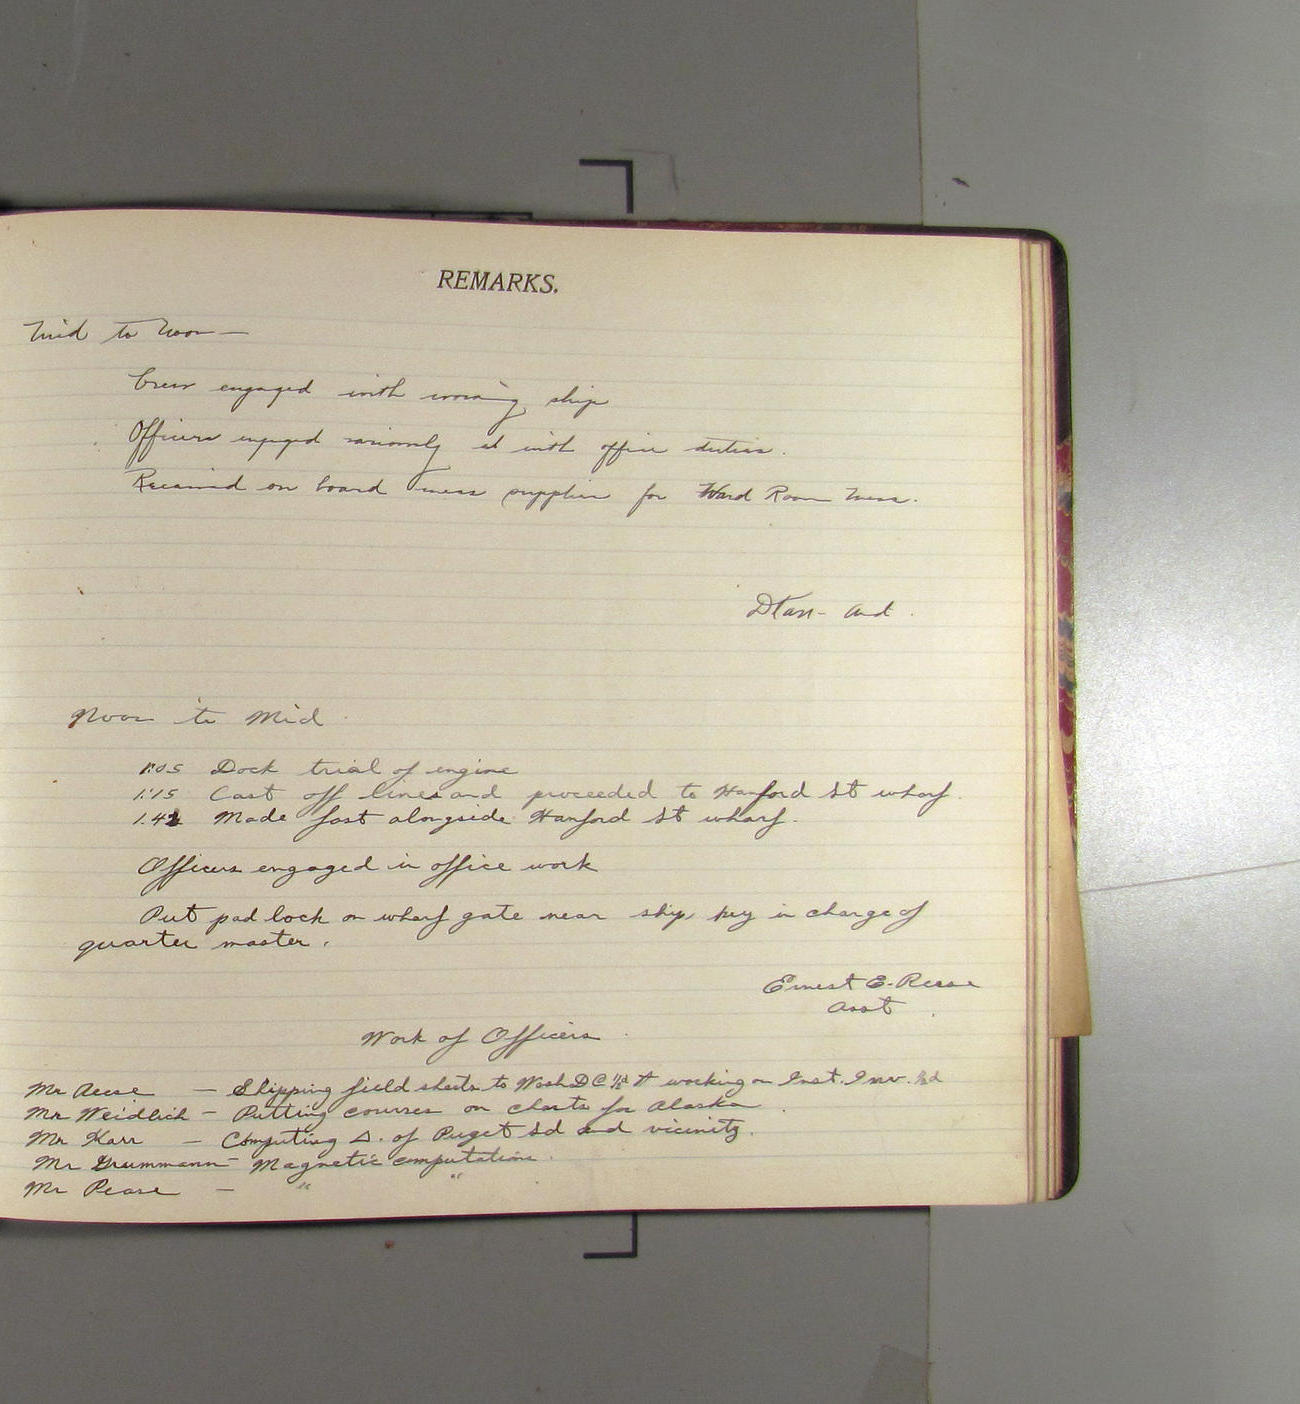 REMARKS.
Mid to Noon —
Crew engaged with moving ship
Officers engaged variously at with office duties.
Received on board mess supplies for Ward Room Mess.
Noon to Mid
1:05 Dock trial of engine
1:15 Cast off lines and proceeded to Hanford St wharf.
1.42 Made fast alongside Hanford St wharf.
Officers engaged in office work
Put pad lock on wharf gate near ship, key in charge of
quarter master.
Ernest E. Reese
Asst
Work of Officers
Mr Reese — Shipping field sheets to Wash DC ½d & working on Inst. Inv. ½d
Mr Weidlich — Putting courses on charts for Alaska
Mr Karr — Computing Δ. of Puget Sd and vicinity.
Mr Grummann — Magnetic computations.
Mr Pease — " "